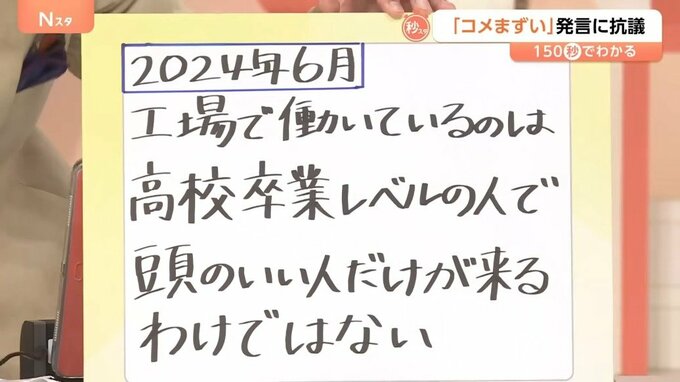 Nスタ
秒スタ
「コメまずい」発言に抗議
150秒でわかる
2024年6月
工場で働いているのは
高校卒業レベルの人で
頭のいい人だけが来る
わけではない